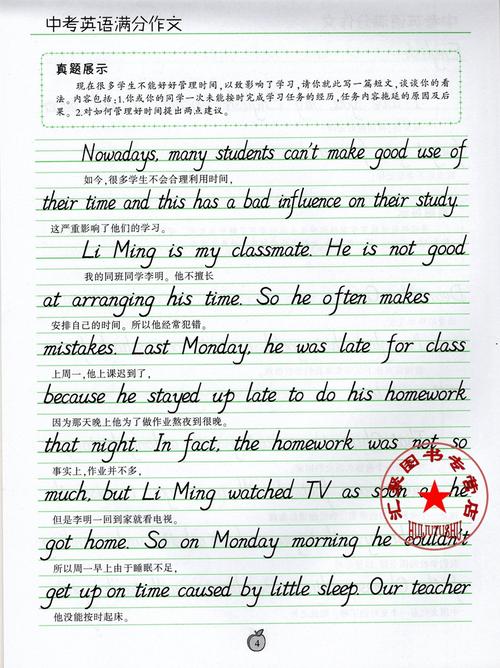 中考英语满分作文
真题展示
现在很多学生不能好好管理时间,以致影响了学习,请你就此写一篇短文,谈谈你的看
法。内容包括:1.你或你的同学一次未能按时完成学习任务的经历,任务内容拖延的原因及后
果。2.对如何管理好时间提出两点建议。
Nowadays, many students can't make good use of
如今,很多学生不会合理利用时间,
their time and this has a bad influence on their study.
这严重影响了他们的学习。
Li Ming is my classmate. He is not good
我的同班同学李明。他不擅长
at arranging his time. So he often makes
安排自己的时间。所以他经常犯错。
mistakes. Last Monday, he was late for class
上周一,他上课迟到了,
because he stayed up late to do his homework
因为那天晚上他为了做作业熬夜到很晚。
that night. In fact, the homework was not so
事实上,作业并不多,
much, but Li Ming watched TV as soon as he
但是李明一回到家就看电视。
got home. So on Monday morning he couldn't
所以周一早上由于睡眠不足,
get up on time caused by little sleep. Our teacher
他没能按时起床。
4
汇聚图书专营店
HUIJUTUSHU